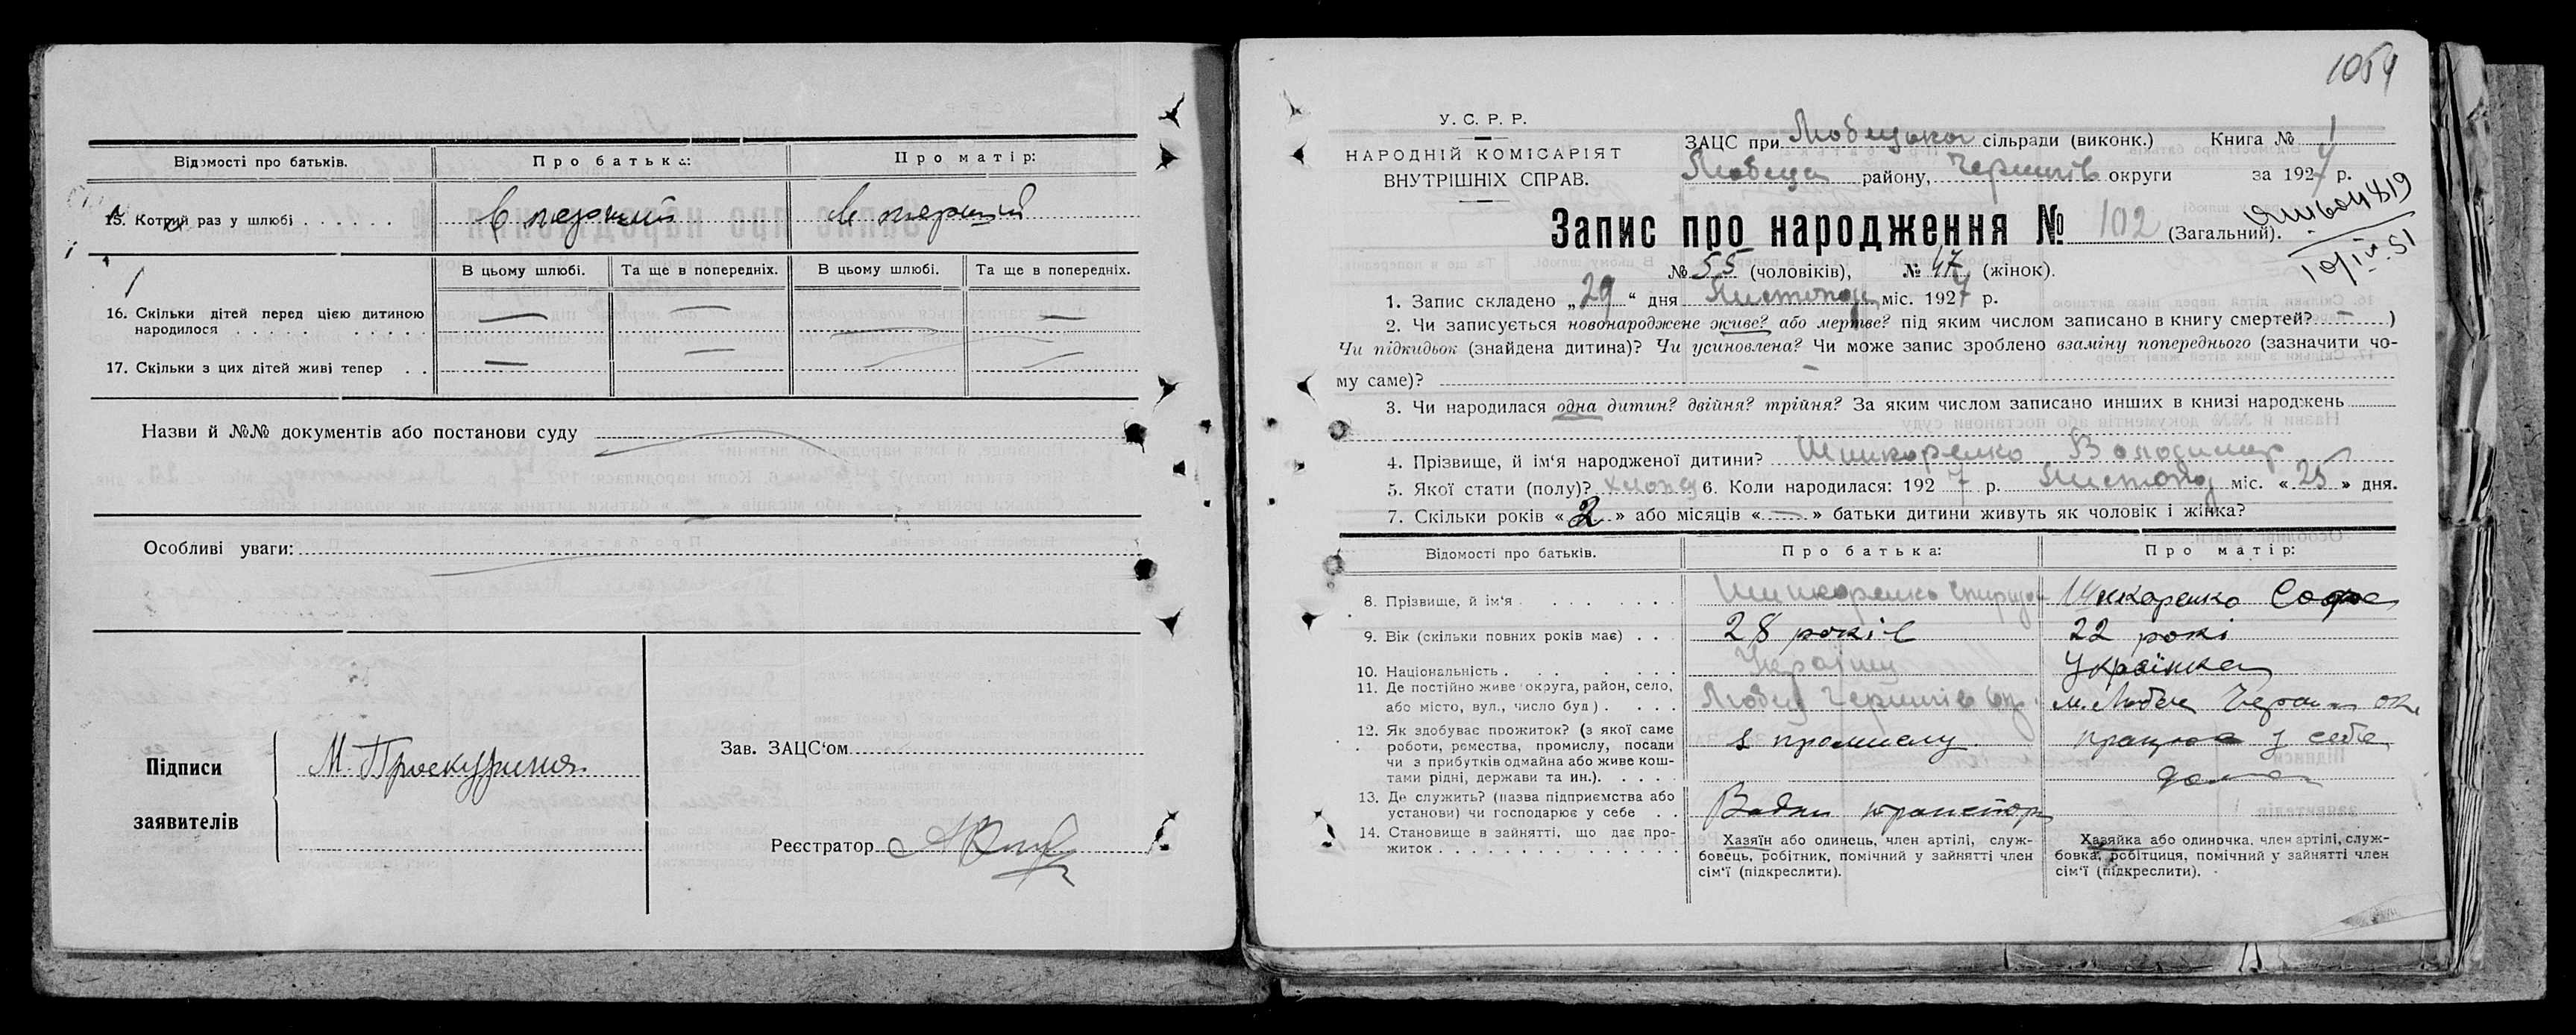 Відомості про батьків. Про батька: Про матір:
15. Котрий раз у шлюбі . . . . . . в первий в первий
В цьому шлюбі. Та ще в попередніх. В цьому шлюбі. Та ще в попередніх.
16. Скільки дітей перед цією дитиною — — —
народилося . . . . . . . . . .
17. Скільки з цих дітей живі тепер . . — —
Назви й №№ документів або постанови суду
Особливі уваги:
Підписи
заявителів
М. Проскурина
Зав. ЗАЦС‘ом
Реєстратор
1054
У. С. Р. Р.
НАРОДНІЙ КОМІСАРІЯТ
ВНУТРІШНІХ СПРАВ.
ЗАЦС при Любецькій сільради (виконк.) Книга № 1
Любець району, Чернигів округи за 1927 р.
Запис про народження № 102 (Загальний).
№ 55 (чоловіків), № 47 (жінок).
1. Запис складено „29“ дня Листопад міс. 1927 р.
2. Чи записується новонароджене живе? або мертве? під яким числом записано в книгу смертей? — )
Чи підкидьок (знайдена дитина)? Чи усиновлена? Чи може запис зроблено взаміну попереднього (зазначити чо-
му саме)? —
3. Чи народилася одна дитин? двійня? трійня? За яким числом записано инших в книзі народжень
4. Прізвище, й ім‘я народженої дитини? Шинкаренко Володимир
5. Якої стати (полу)? хлопец 6. Коли народилася: 1927 р. Листопад міс. «25» дня.
7. Скільки років «2» або місяців «—» батьки дитини живуть як чоловік і жінка?
Відомості про батьків. Про батька: Про матір:
8. Прізвище, й ім‘я . . . . . Шинкаренко Спиридон Шинкаренко Софія
9. Вік (скільки повних років має) . . . 28 років 22 рокі
10. Національність . . . . . . Українц Українка
11. Де постійно живе (округа, район, село,
або місто, вул., число буд) . . . . Любец Чернигів окр. м. Любеч Черниг ок.
12. Як здобуває прожиток? (з якої саме
роботи, ремества, промислу, посади з промислу працює у себе
чи з прибутків одмайна або живе кош-
тами рідні, держави та ин.). . . . . дома
13. Де служить? (назва підприємства або
установи) чи господарює у себе . . Водни транспорт
14. Становище в зайнятті, що дає про-
житок . . . . . . . . . . . .
Хазяїн або одинець, член артілі, служ-
бовець, робітник, помічний у зайнятті член
сім‘ї (підкреслити).
Хазяйка або одиночка, член артілі, служ-
бовка, робітниця, помічний у зайнятті член
сім‘ї (підкреслити).